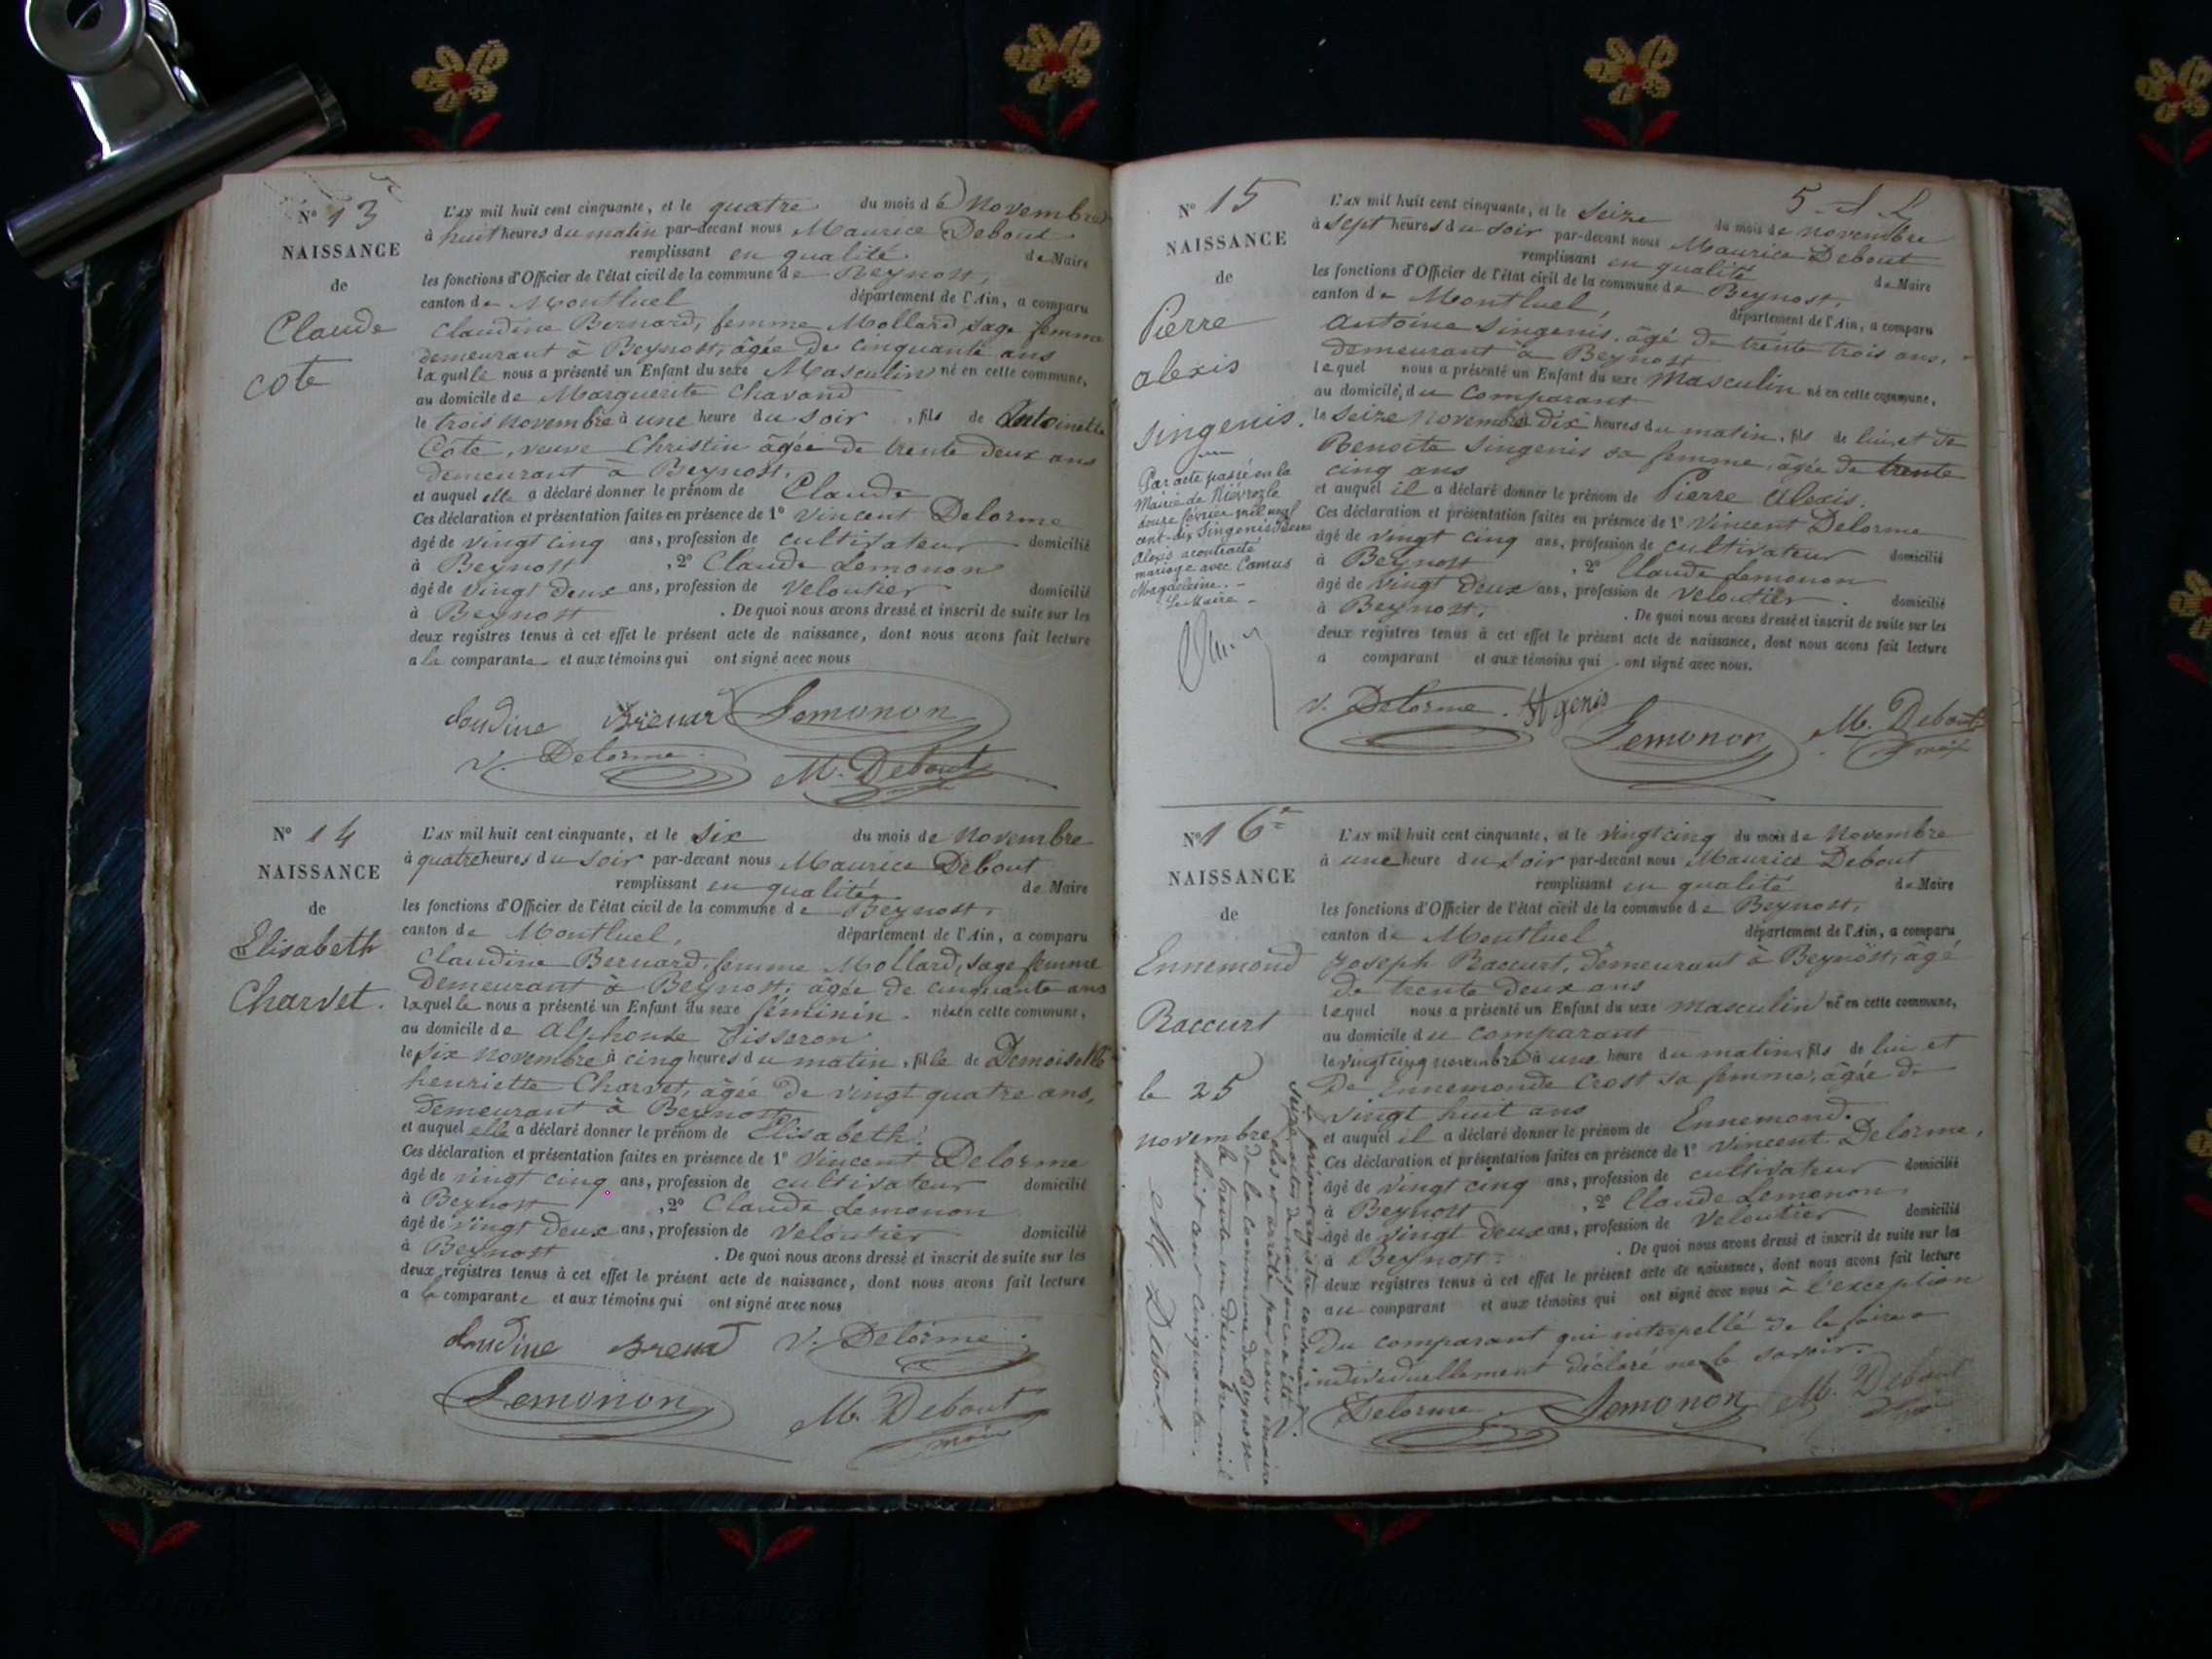 N° 13
NAISSANCE
de
Claude
Cote
L'AN mil huit cent cinquante, et le quatre du mois de Novembre
à huit heures du matin par-devant nous Maurice Debout
remplissant en qualité de Maire
les fonctions d'Officier de l'état civil de la commune de Beynost,
canton de Montluel département de l'Ain, a comparu
Claudine Bernard, femme Mollard, sage femme
demeurant à Beynost, âgée de cinquante ans
laquelle nous a présenté un Enfant du sexe Masculin né en cette commune,
au domicile de Marguerite Chavand
le trois novembre à une heure du soir, fils de Antoinette
Cote, veuve Christin âgée de trente deux ans
demeurant à Beynost.
et auquel elle a déclaré donner le prénom de Claude
Ces déclaration et présentation faites en présence de 1° Vincent Delorme
âgé de vingt cinq ans, profession de cultivateur domicilié
à Beynost, 2° Claude Lemonon
âgé de vingt deux ans, profession de veloutier domicilié
à Beynost. De quoi nous avons dressé et inscrit de suite sur les
deux registres tenus à cet effet le présent acte de naissance, dont nous avons fait lecture
a la comparante et aux témoins qui ont signé avec nous
Lemonon
V. Delorme M. Debout
N° 14
NAISSANCE
de
Elisabeth
Charvet.
L'AN mil huit cent cinquante, et le six du mois de novembre
à quatre heures du soir par-devant nous Maurice Debout
remplissant en qualité de Maire
les fonctions d'Officier de l'état civil de la commune de Beynost.
canton de Montluel, département de l'Ain, a comparu
Claudine Bernard, femme Mollard, sage femme
demeurant à Beynost, âgée de cinquante ans
laquelle nous a présenté un Enfant du sexe féminin. née en cette commune,
au domicile de Alphonse Tisseron
le six novembre à cinq heures du matin, fille de Demoiselle
henriette Charvet, âgée de vingt quatre ans,
demeurant à Beynost
et auquel elle a déclaré donner le prénom de Elisabeth.
Ces déclaration et présentation faites en présence de 1° Vincent Delorme
âgé de vingt cinq ans, profession de cultivateur domicilié
à Beynost, 2° Claude Lemonon
âgé de vingt deux ans, profession de veloutier domicilié
à Beynost. De quoi nous avons dressé et inscrit de suite sur les
deux registres tenus à cet effet le présent acte de naissance, dont nous avons fait lecture
a la comparante et aux témoins qui ont signé avec nous
V. Delorme
Lemonon M. Debout
maire
N° 15
NAISSANCE
de
Pierre
alexis
Singenis.
Par acte passé en la
Mairie de Niévroz le
douze février mil neuf
cent-dix Singenis Pierre
Alexis a contracté
mariage avec Camus
Magdeleine. -
Le Maire -
L'AN mil huit cent cinquante, et le seize du mois de novembre
à sept heures du soir par-devant nous Maurice Debout
remplissant en qualité de Maire
les fonctions d'Officier de l'état civil de la commune de Beynost,
canton de Montluel, département de l'Ain, a comparu
Antoine Singenis, âgé de trente trois ans,
demeurant à Beynost
lequel nous a présenté un Enfant du sexe masculin né en cette commune,
au domicile du comparant
le seize novembre à dix heures du matin, fils de lui et de
Benoite Singenis sa femme, âgée de trente
cinq ans
et auquel il a déclaré donner le prénom de Pierre Alexis.
Ces déclaration et présentation faites en présence de 1° Vincent Delorme
âgé de vingt cinq ans, profession de cultivateur domicilié
à Beynost, 2° Claude Lemonon
âgé de vingt deux ans, profession de veloutier. domicilié
à Beynost. De quoi nous avons dressé et inscrit de suite sur les
deux registres tenus à cet effet le présent acte de naissance, dont nous avons fait lecture
a comparant et aux témoins qui ont signé avec nous.
V. Delorme Lemonon M. Debout
N° 16
NAISSANCE
de
Ennemond
Baccurt
le 25
novembre
M. Debout
Le présent registre contenant
seize actes de naissance a été
clos et arrêté par nous maire
de la commune de Beynost
le trente un décembre mil
huit cent cinquante.
L'AN mil huit cent cinquante, et le vingt cinq du mois de novembre
à une heure du soir par-devant nous Maurice Debout
remplissant en qualité de Maire
les fonctions d'Officier de l'état civil de la commune de Beynost,
canton de Montluel département de l'Ain, a comparu
Joseph Baccurt, demeurant à Beynost, âgé
de trente deux ans
lequel nous a présenté un Enfant du sexe masculin né en cette commune,
au domicile du comparant
le vingt cinq novembre à une heure du matin, fils de lui et
de Ennemonde Crost sa femme, âgée de
vingt huit ans
et auquel il a déclaré donner le prénom de Ennemond.
Ces déclaration et présentation faites en présence de 1° Vincent Delorme,
âgé de vingt cinq ans, profession de cultivateur domicilié
à Beynost, 2° Claude Lemonon
âgé de vingt deux ans, profession de veloutier domicilié
à Beynost. De quoi nous avons dressé et inscrit de suite sur les
deux registres tenus à cet effet le présent acte de naissance, dont nous avons fait lecture
au comparant et aux témoins qui ont signé avec nous à l'exception
du comparant qui interpellé de le faire a
individuellement déclaré ne le savoir.
Delorme Lemonon M. Debout